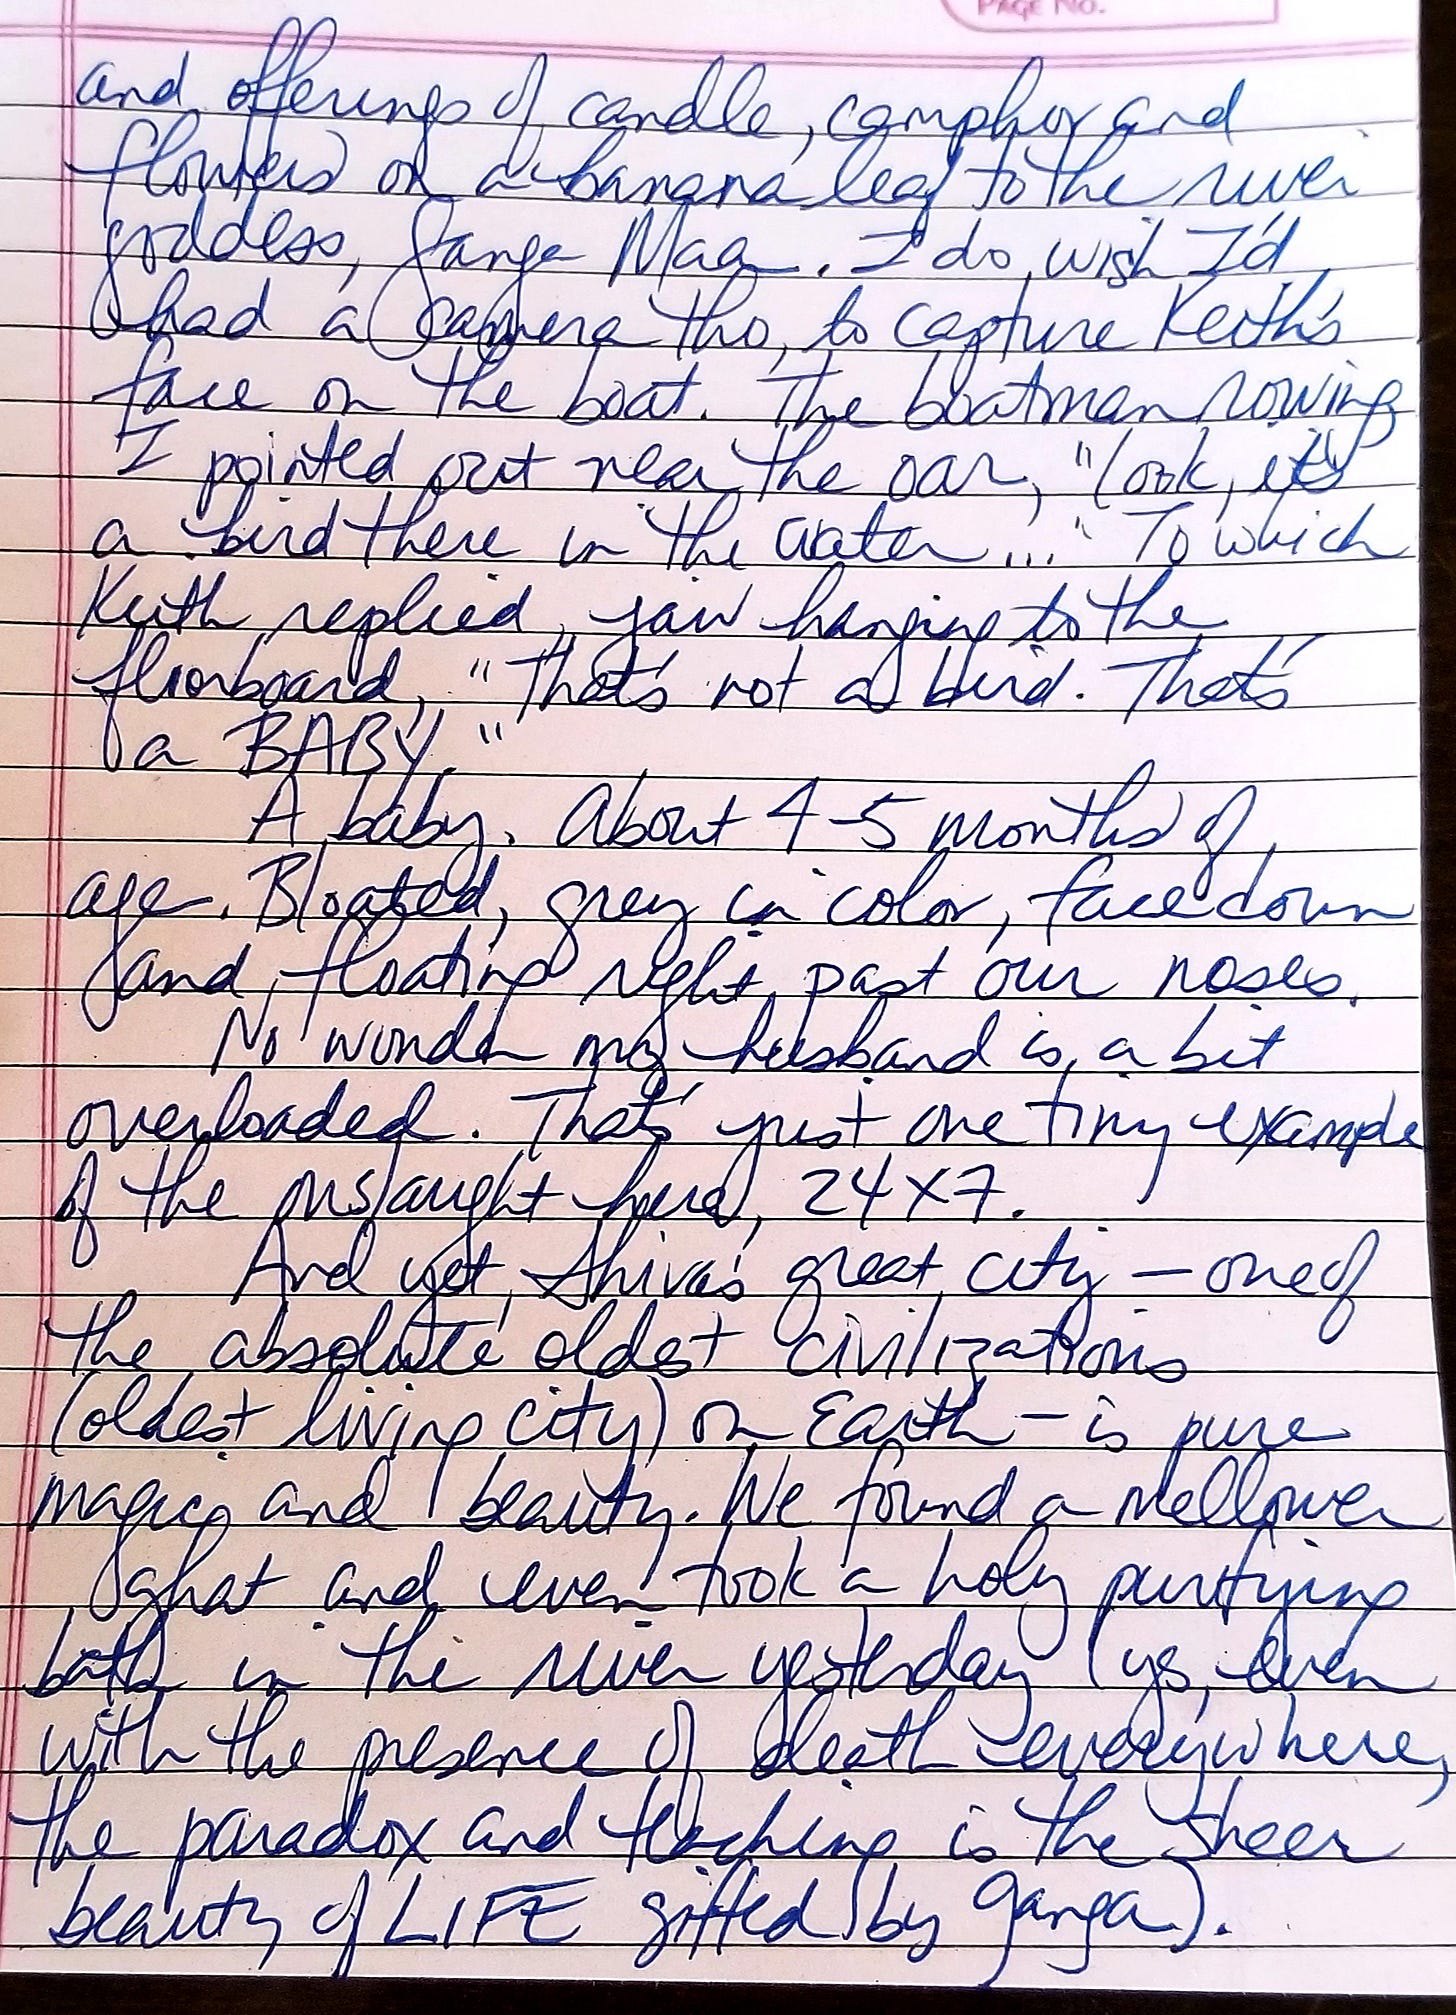 PAGE NO.
and offerings of candle, camphor and
flowers on a banana leaf to the river
goddess, Ganga Maa. I do wish I'd
had a camera tho, to capture Keith's
face on the boat. The boatman rowing
I pointed out near the oar, "look, it's
a bird there in the water..." To which
Keith replied, jaw hanging to the
floorboard, "That's not a bird. That's
a BABY."
A baby. About 4-5 months of
age. Bloated, grey in color, face down
and floating right past our noses.
No wonder my husband is a bit
overloaded. That's just one tiny example
of the onslaught here, 24X7.
And yet, Shiva's great city - one of
the absolute oldest civilizations
(oldest living city) on Earth - is pure
magic and beauty. We found a mellower
ghat and even took a holy purifying
bath in the river yesterday (yes, even
with the presence of death everywhere,
the paradox and teaching is the sheer
beauty of LIFE gifted by Ganga).